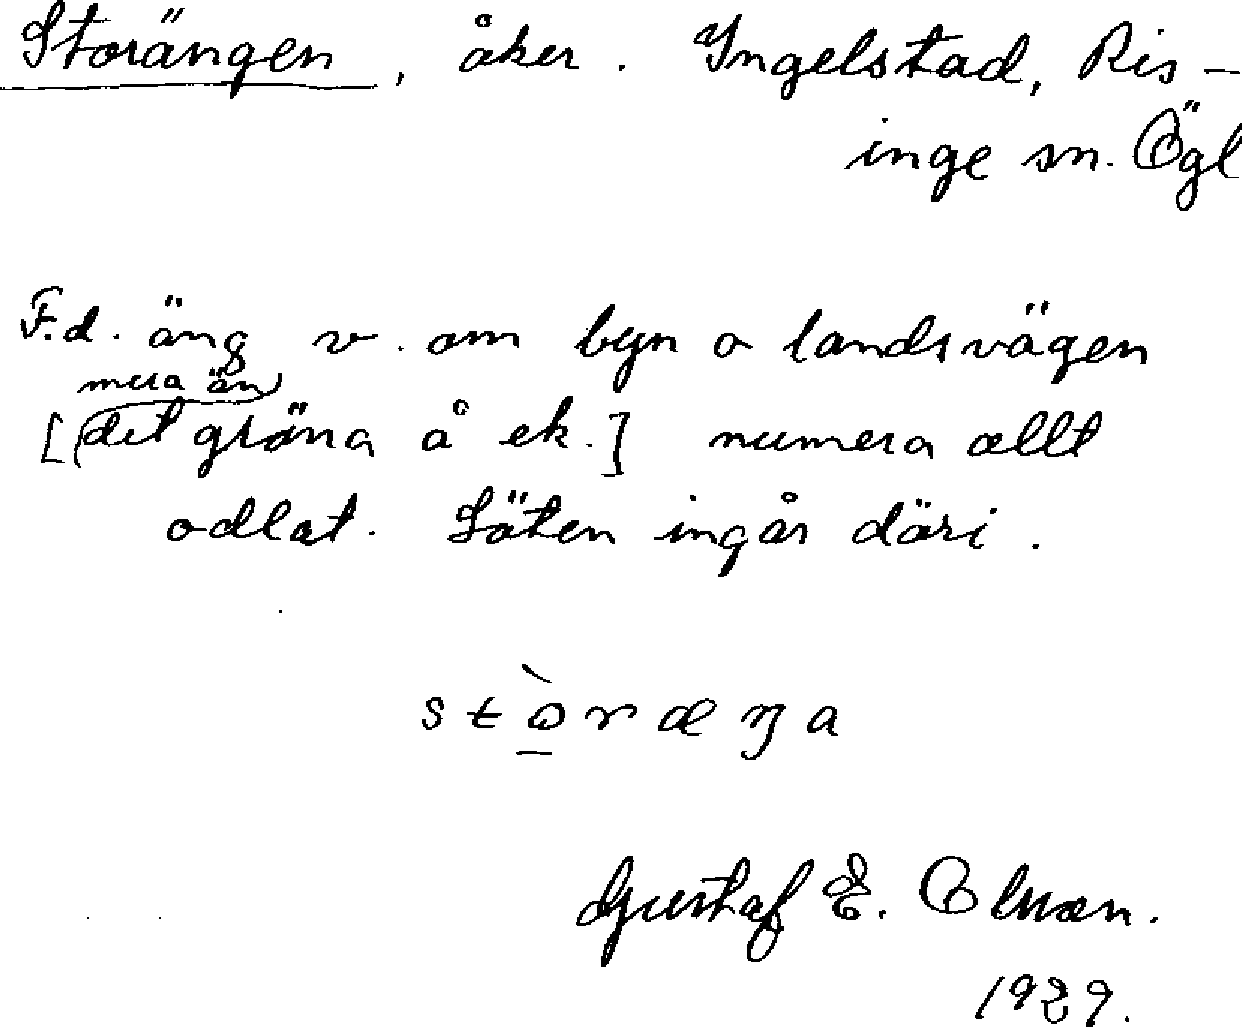 Storängen, åker. Ingelstad, Ris-
inge sn. Ögl
F.d. äng v. om byn o landsvägen
mera än
[det gröna å ek.] numera allt
odlat. Säten ingår däri.
Gustaf E.
1929.